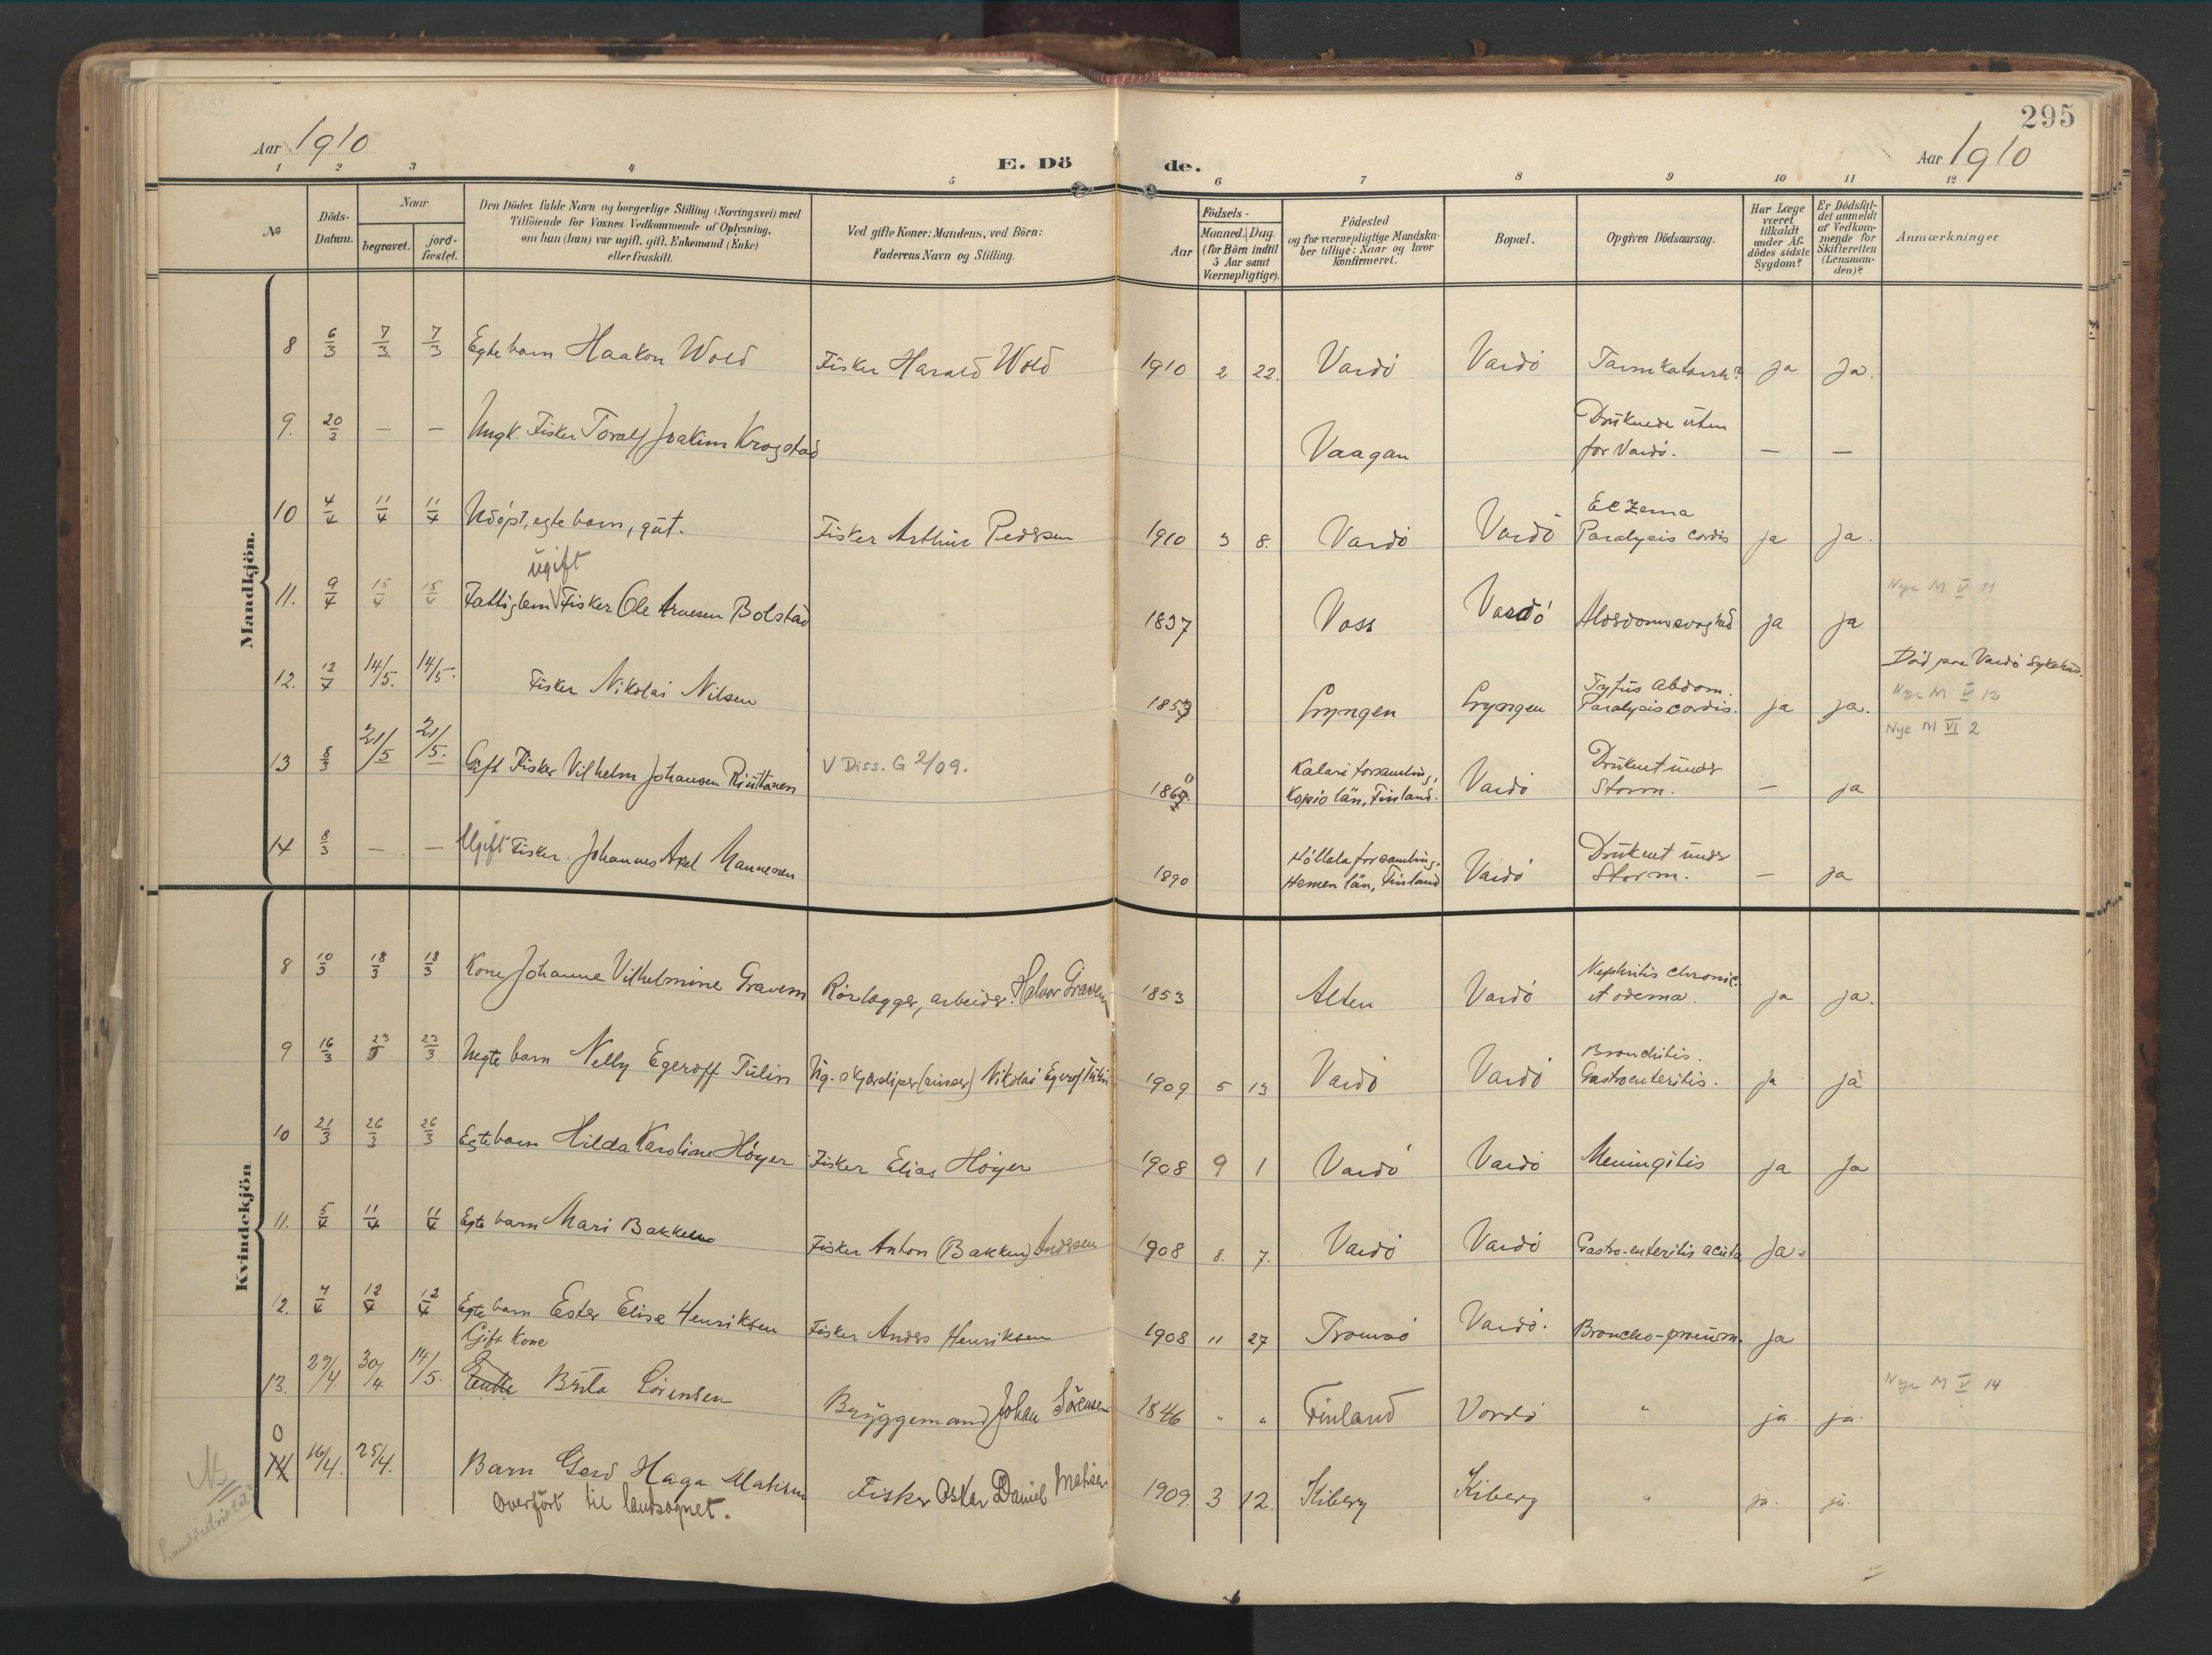 295
Aar 1910
E. Dö
de.
Aar 1910
1 2 3 4 5 6 7 8 9 10 11 12
No
Döds-
Datum.
Naar
begravet.
jord-
fæstet.
Den Dödes fulde Navn og borgerlige Stilling (Næringsvei) med
Tilföiende for Voxnes Vedkommende af Oplysning,
om han (hun) var ugift, gift, Enkemand (Enke)
eller fraskilt.
Ved gifte Koner: Mandens, ved Börn:
Faderens Navn og Stilling.
Födsels-
Aar
Maaned. Dag.
(for Börn indtil
5 Aar samt
Værnepligtige).
Födested
og for værnepligtige Mandska-
ber tillige: Naar og hvor
konfirmeret.
Bopæl.
Opgiven Dödsaarsag.
Har Læge
været
tilkaldt
under Af-
dödes sidste
Sygdom?
Er Dödsfal-
det anmeldt
af Vedkom-
mende for
Skifteretten
(Lensman-
den)?
Anmærkninger
Mandkjön.
8 6/3 7/3 7/3 Egte barn Haakon Wold Fisker Harald Wold 1910 2 22. Vardö Vardö Tarmkatarrh? ja Ja.
9. 20/3 — — Ungk. Fisker Toralf Joakim Krogstad Vaagan Druknede uten
for Vardö. — —
10 4/4 11/4 11/4 Udöpt, egte barn, gut. Fisker Arthur Pedersen 1910 3 8. Vardö Vardö Eczema
Paralysis cordis ja Ja.
ugift
11. 9/4 15/4 15/4 Fattiglem Fisker Ole Arnesen Bolstad 1837 Voss Vardö ja ja
Nye M V 11
12. 12/4 14/5. 14/5. Fisker Nikolai Nilsen Lyngen Lyngen Tyfus Abdom.
Paralysis cordis. ja ja.
Död paa Vardö Sykehus.
Nye M V 12
Nye M VI 2
13 8/3 21/5 21/5. Gift Fisker Vilhelm Johansen V Diss. G 2/09. Kalari forsamling,
Kopio län, Finland. Vardö Druknet under
Storm. — ja
14 8/3 — — Ugift Fisker Johannes Axel Mannesen 1890 Hollola forsamling,
Hemen län, Finland Vardö Druknet under
Storm. — ja
Kvindekjön
8 10/3 18/3 18/3 Kone Johanne Vilhelmine Gravem Rörlægger, arbeider Halvor Gravem 1853 Alten Vardö Nephritis chronic.
et odema. ja ja.
9 16/3 23/3 23/3 Uegte barn Nelly Egeroff Tulin Nikolai Egeroff Tulin 1909 5 13 Vardö Vardö Bronchitis.
Gastroenteritis. ja ja
10 21/3 26/3 26/3 Egte barn Hilda Karoline Höyer Fisker Elias Höyer 1908 9 1 Vardö Vardö Meningitis ja Ja
11. 5/4 11/4 11/4 Egte barn Mari Bakken Fisker Anton (Bakken) Andersen 1908 8. 7. Vardö Vardö Gastro-enteritis acuta Ja.
12. 7/4 12/4 12/4 Egte barn Ester Elise Henriksen Fisker Anders Henriksen 1908 11 27 Tromsö Vardö. Broncho-pneum. ja
Gift Kone
13. 29/4 30/4 14/5. Brita Sörensen Bryggemand Johan Sörensen 1846 " " Finland Vardö " ja. ja.
Nye M V 14
0
14 16/4. 25/4. Barn Gerd Haga Mathisen Fisker Oskar Daniel Mathisen 1909. 3 12. Kiberg Kiberg " ja. ja.
overfört til landsognet.
NB
Landdistriktet?